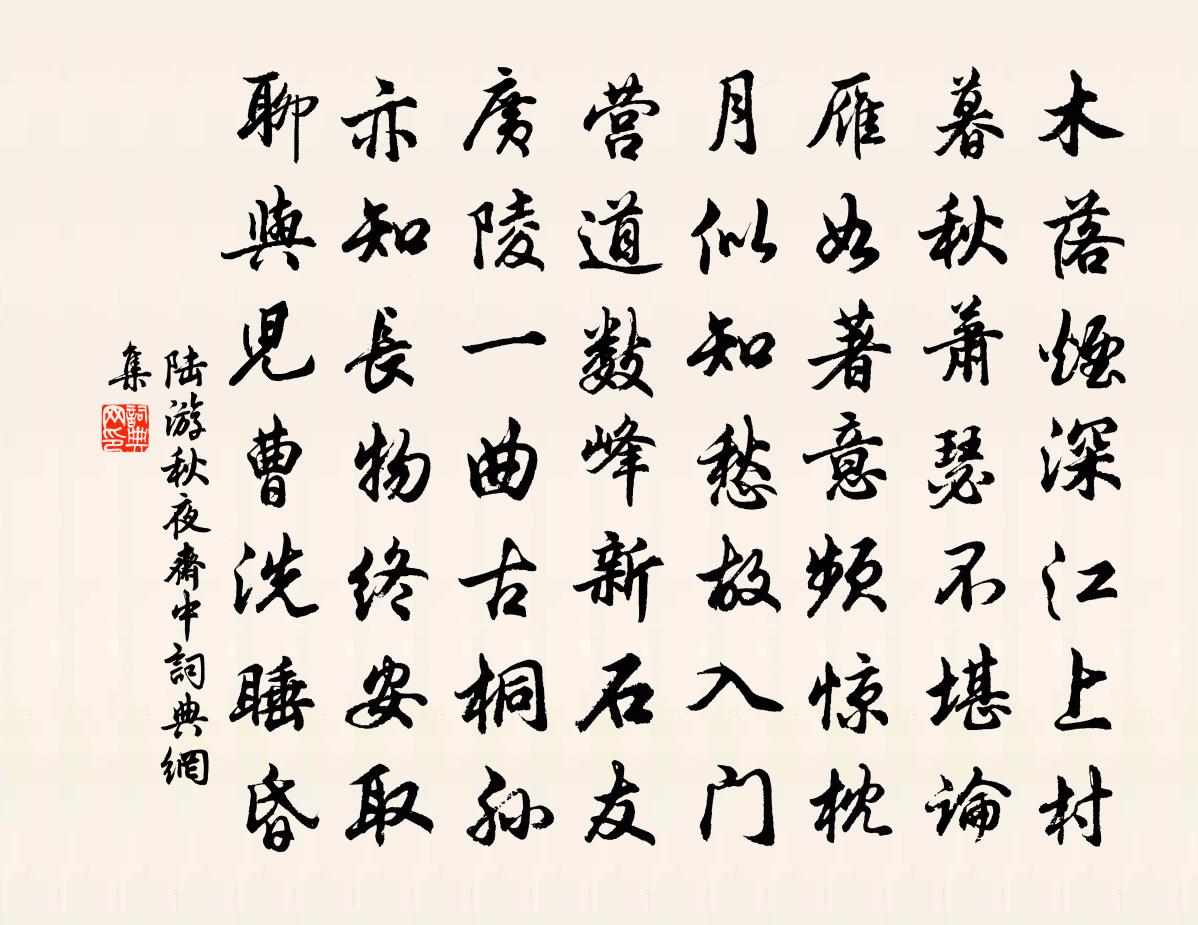 木落煙深江上村
暮秋蕭瑟不堪論
雁如著意頻惊枕
月似知愁故入门
营道數峰新石友
廣陵一曲古桐孫
亦知長物終安取
聊與兒曹洗睡昏
陆游秋夜齋中詞典網
集
詞典
网印